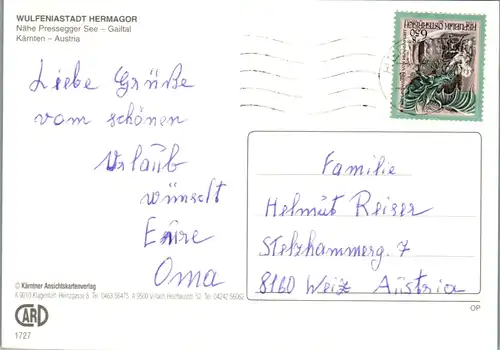 WULFENIASTADT HERMAGOR
Nähe Pressegger See – Gailtal
Kärnten – Austria
Liebe Grüße
vom schönen
Urlaub
wünscht
Eure
Oma
Familie
Helmut Reiser
Stelzhammerg. 7
8160 Weiz Austria
© Kärntner Ansichtskartenverlag
A 9010 Klagenfurt Herrngasse 6 Tel. 0463 56475 A 9500 Villach Tel. 04242 56062
CARD
1727
OP
650
REPUBLIK ÖSTERREICH